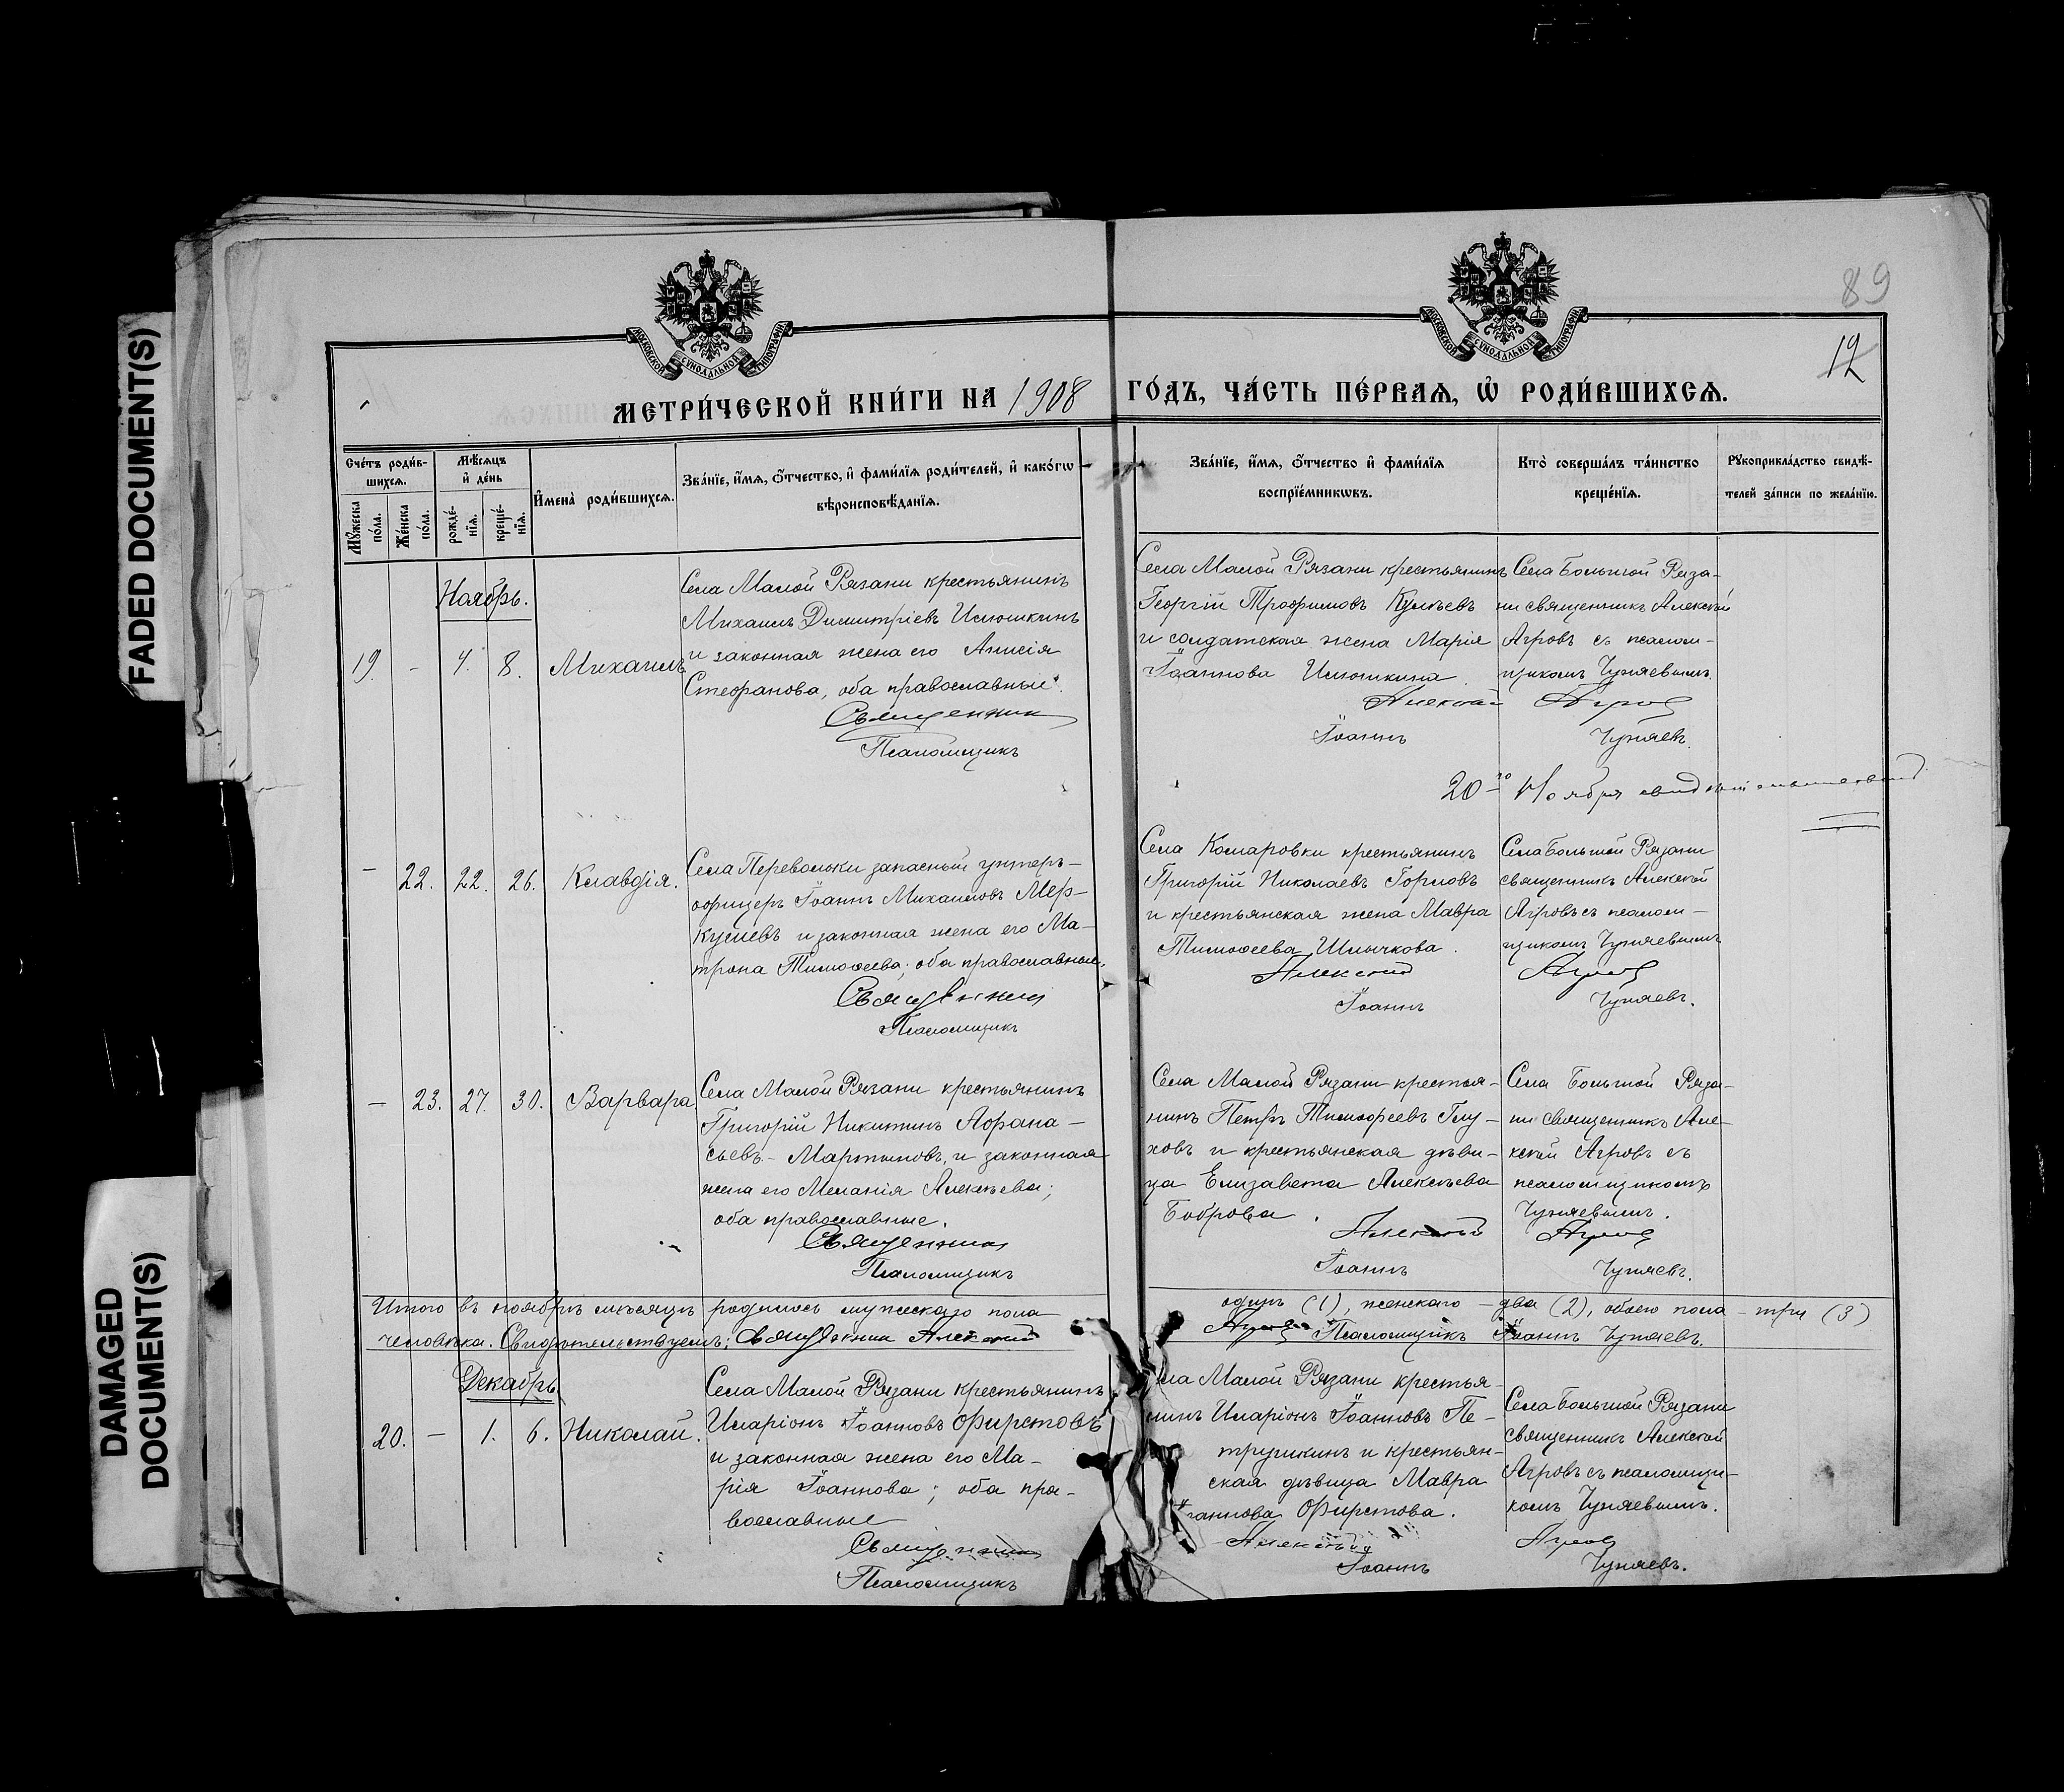 FADED DOCUMENT(S)
DAMAGED
DOCUMENT(S)
89
12
МОСКОВСКОЙ СУНОДАЛЬНОЙ ТИПОГРАФІИ
МОСКОВСКОЙ СУНОДАЛЬНОЙ ТИПОГРАФІИ
МЕТРИ́ЧЕСКОЙ КНИ́ГИ НА 1908 ГО́ДЪ, ЧА́СТЬ ПЕ́РВАѦ, Ѽ РОДИ́ВШИХСѦ.
Сче́тъ роди́в-
шихсѧ.
Мꙋжеска
по́ла.
Же́нска
по́ла.
Мѣ́сѧцъ
и҆ де́нь
рожде́-
нїѧ.
креще́-
нїѧ.
И҆мена̀ роди́вшихсѧ.
Зва́нїе, и҆́мѧ, ѻ҆́тчество, и҆ фами́лїѧ роди́телей, и҆ како́гѡ
вѣроисповѣ́данїѧ.
Зва́нїе, и҆́мѧ, ѻ҆́тчество и҆ фами́лїѧ
воспрїе́мникѡвъ.
Кто̀ соверша́лъ та́инство
креще́нїѧ.
Рꙋкоприкла́дство свидѣ́-
телей за́писи по жела́нїю.
Ноябрь.
19. - 4. 8. Михаилъ
Села Малой Рязани крестьянинъ
Михаилъ Димитріевъ Илюшкинъ
и законная жена его Анисія
Стефанова, оба православные.
Священник
Псаломщикъ
Села Малой Рязани крестьянинъ
Георгій Трофимовъ Кулѣевъ
и солдатская жена Марія
Іоаннова Илюшкина.
Алексѣй
Іоаннъ
Села Большой Ряза-
ни священникъ Алексѣй
Агровъ съ псалом-
щикомъ Чуняевымъ.
Агров
Чуняевъ.
20го Ноября
- 22. 22. 26. Клавдія.
Села Переволоки запасный унтеръ-
офицеръ Іоаннъ Михаиловъ Мер-
кулиевъ и законная жена его Ма-
трона Тимоѳеева; оба православные.
Священник
Псаломщикъ
Села Комаровки крестьянинъ
Григорій Николаевъ Горловъ
и крестьянская жена Мавра
Тимоѳеева Шлычкова.
Алексѣй
Іоаннъ
Села Большой Рязани
священникъ Алексѣй
Агровъ съ псалом-
щикомъ Чуняевымъ
Агров
Чуняевъ.
- 23. 27. 30. Варвара.
Села Малой Рязани крестьянинъ
Григорій Никитинъ Афана-
сьевъ-Мартыновъ, и законная
жена его Меланія Алексѣева;
оба православные.
Священник
Псаломщикъ
Села Малой Рязани крестья-
нинъ Петръ Тимофеевъ Глу-
ховъ и крестьянская дѣви-
ца Елизавета Алексѣева
Боброва.
Алексѣй
Іоаннъ
Села Большой Ряза-
ни священникъ Але-
ксѣй Агровъ съ
псаломщикомъ
Чуняевымъ.
Агров
Чуняевъ.
Итого въ ноябрѣ мѣсяцѣ родилось мужескаго пола одинъ (1), женскаго - два (2), обоего пола - три (3)
человѣка. Свидѣтельствуемъ: Священник Алексѣй Агров Псаломщикъ Іоаннъ Чуняевъ.
Декабрь
20. - 1. 6. Николай.
Села Малой Рязани крестьянинъ
Иларіонъ Іоанновъ Фирстовъ
и законная жена его Ма-
рія Іоаннова; оба пра-
вославные
Священник
Псаломщикъ
Села Малой Рязани крестья-
нинъ Иларіонъ Іоанновъ Пе-
трушкинъ и крестьян-
ская дѣвица Мавра
Іоаннова Фирстова.
Алексѣй
Іоаннъ
Села Большой Рязани
священникъ Алексѣй
Агровъ съ псаломщи-
комъ Чуняевымъ.
Агров
Чуняевъ.